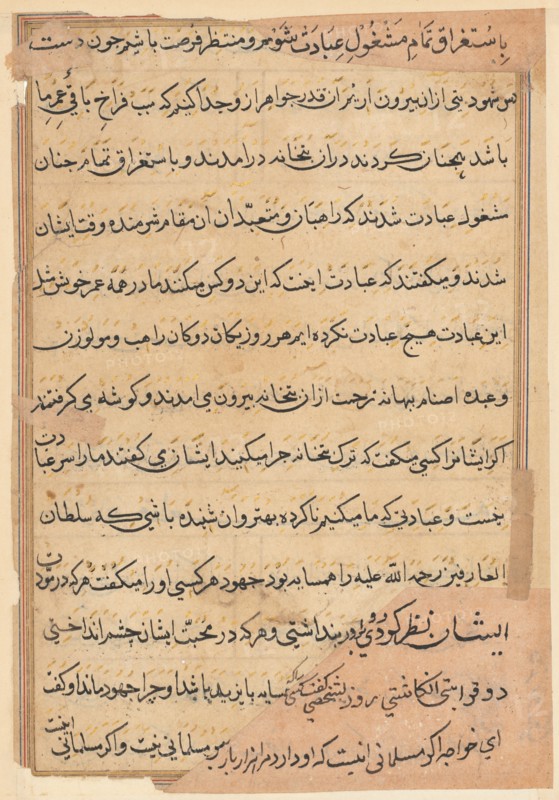 باستغراق تمام مشغول عبادت شویم و منتظر فرصت باشیم چون دست
بس شود بتی ازان بیرون اریم ان قدر جواهر از وجدا کنیم که سبب فراخ باقی عمر ما
باشد همچنان کردند دران بتخانه درامدند و باستغراق تمام چنان
مشغول عبادت شدند که راهبان و متعبدان آن مقام شرمنده وقت ایشان
شدند و میکفتند که عبادت اینست که این دو کس میکنند ما در همه عمر خویش مثل
این عبادت هیچ عبادت نکرده ایم هر روز یکان دوکان راهب و مولوزن
و عبده اصنام بهانه زحمت ازان بتخانه بیرون می امدند و کوشه می کرفتند
اکر ایشانرا کسی میکفت که ترک بتخانه چرا میکنید ایشان می کفتند ما را سر عبادت
نیست و عبادتی که ما میکنیم ناکرده بهتر وان شنیده باشی که سلطان
العارفین رحمه الله علیه را همسایه بود جهود هر کسی او را میکفت هر که در مودت
ایشان نظر کردی زور بنداشتی و هر که در محبت ایشان چشم انداختی
دو قرابتی انکاشتی روزی شخصی کفت کسی که همسایه بایزید باشد او چرا جهود ماند او کفت
ای خواجه اکر مسلمانی انیست که او دارد مرا نزار بار بس مسلمانی نیست و اکر مسلمانی اینست